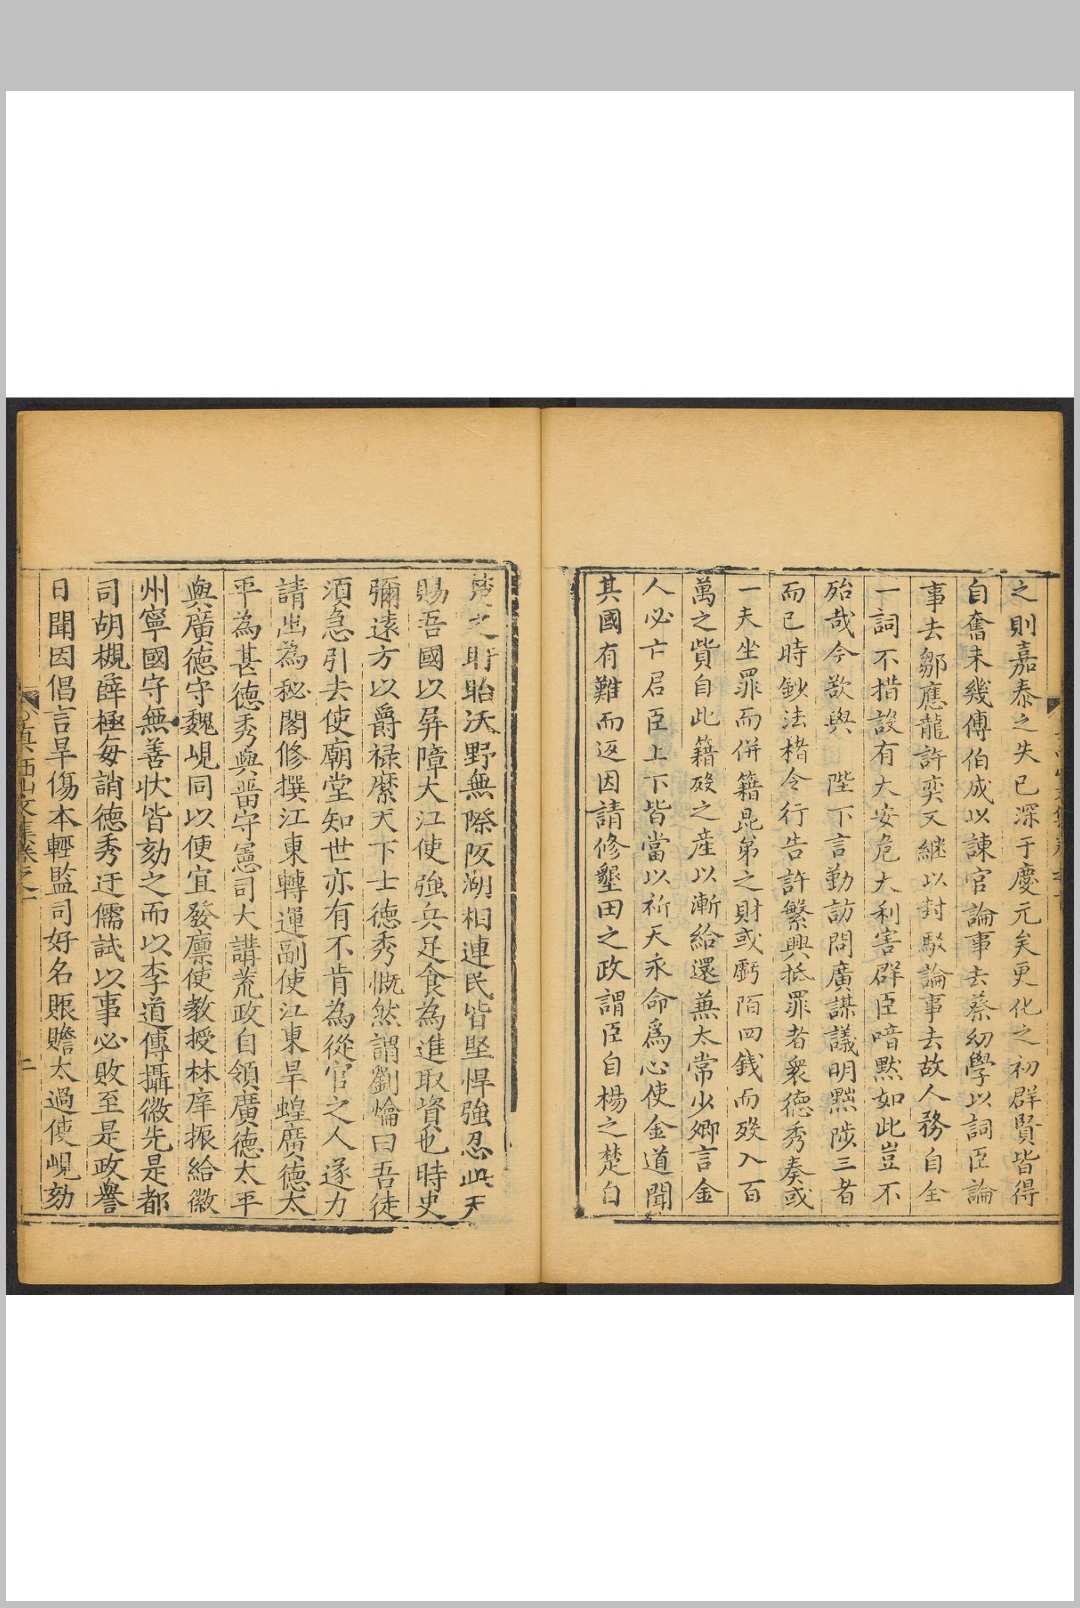 之則嘉泰之失已深于慶元矣更化之初群賢皆得
自奮未幾傅伯成以諫官論事去蔡幼學以詞臣論
事去鄒應龍許奕又繼以封駁論事去故人務自全
一詞不措設有大安危大利害群臣喑黙如此豈不
殆哉今欲與 陛下言勤訪問廣謀議明黜陟三者
而已時鈔法楮令行告訐繁興抵罪者衆德秀奏或
一夫坐罪而併籍昆弟之財或虧陌四錢而歿入百
萬之貲自此籍歿之産以漸給還兼太常少卿言金
人必亡君臣上下皆當以祈天永命爲心使金道聞
其國有難而返因請修墾田之政謂臣自楊之楚自
楚之盱眙沃野無際陂湖相連民皆堅悍強忍此天
賜吾國以屏障大江使強兵足食為進取資也時史
彌遠方以爵禄縻天下士德秀慨然謂劉爚曰吾徒
須急引去使廟堂知世亦有不肯為從官之人遂力
請出為秘閣修撰江東轉運副使江東旱蝗廣德太
平為甚德秀與畱守憲司大講荒政自領廣德太平
與廣德守魏峴同以便宜發廪使教授林庠振給徽
州寧國守無善状皆劾之而以李道傳攝徽先是都
司胡槻薛極每誚德秀迂儒試以事必敗至是政譽
日聞因倡言旱傷本輕監司好名賑贍太過使峴劾
真西山文集卷之一
二